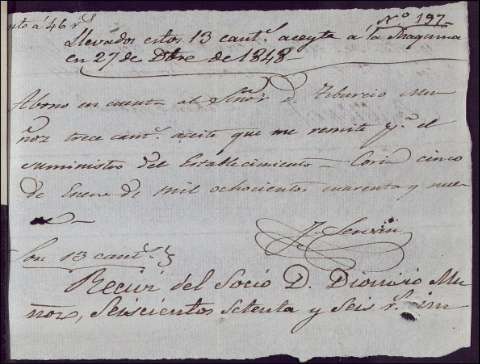 nto á 46 r.s
Nº 197.
Llevados estos 13 cant.s aceyte a la Maquina
en 27 de Dbre de 1848
Abono en cuenta al Señor D. Tiburcio Mu-
ñoz trece cant.s aceite que me remite p.a el
suministro del Establecimiento. Coria cinco
de Enero de mil ochocientos cuarenta y nue-
Son 13 cant.s
Recivi del Socio D. Dionisio Mu-
ñoz, Seiscientos setenta y seis r.s